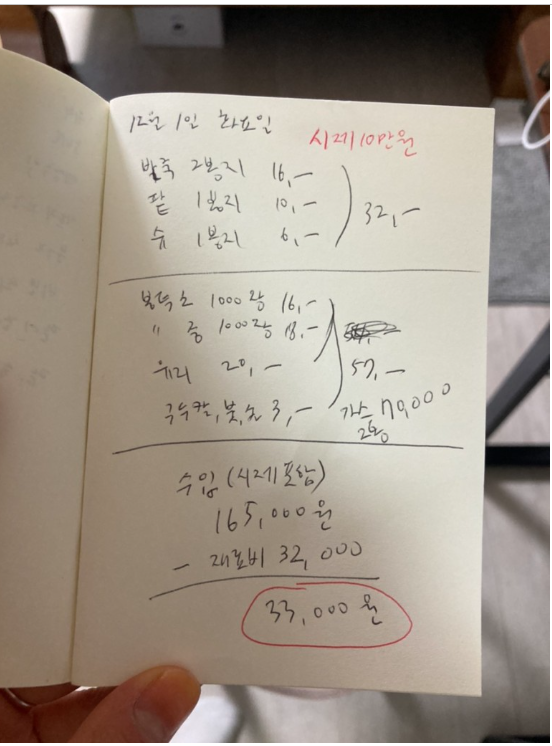 12월 1일 화요일
시제 10만원
반죽 2봉지 16,-
팥 1봉지 10,-
슈 1봉지 6,-
32,-
봉투 소 1000장 16,-
〃 중 1000장 18,-
유리 20,-
57,-
3,-
가스 70,000
2통
수입 (시제포함)
165,000원
- 재료비 32,000
33,000원